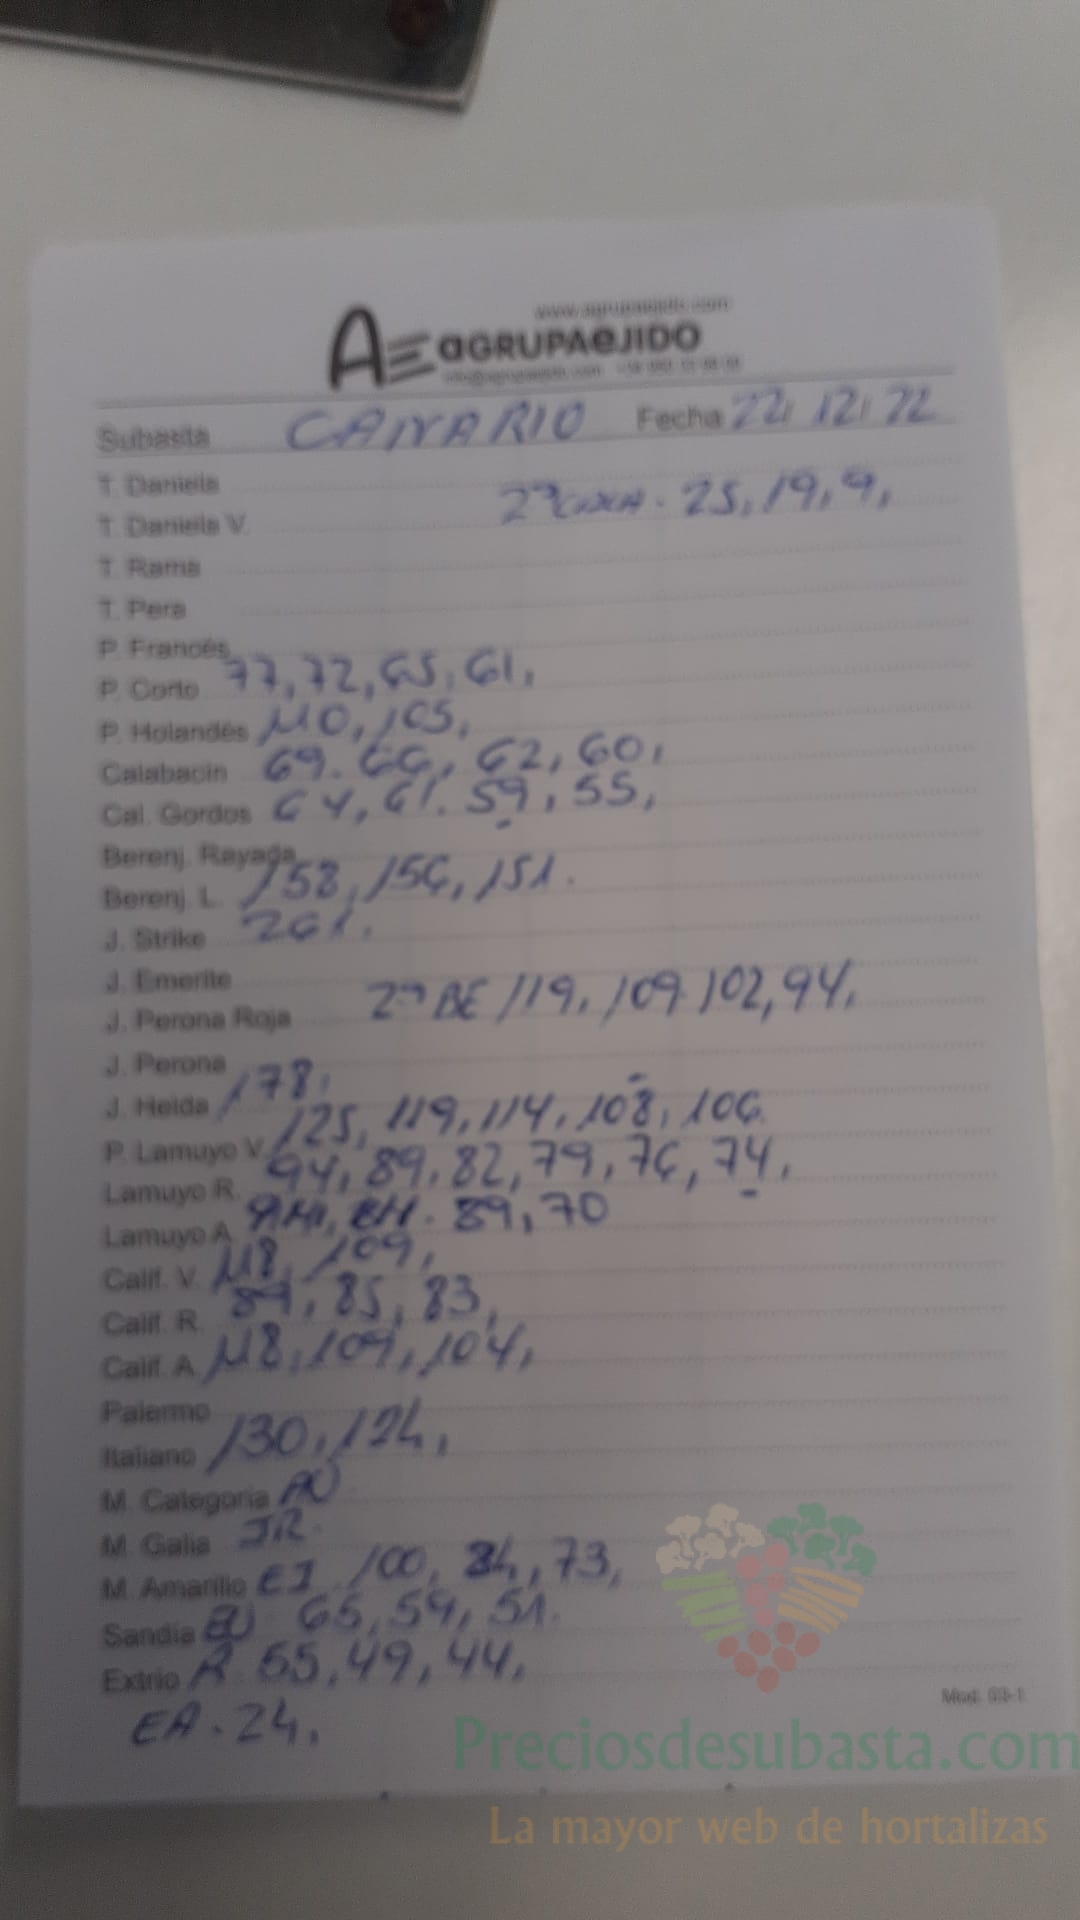 www.agrupaejido.com
AE aGRUPAeJIDO
info@agrupaejido.com
Subasta CANARIO Fecha 22/ 12/ 22
T. Daniela
T. Daniela V. 25, 19, 9,
T. Rama
T. Pera
P. Francés
P. Corto 77, 72, 65, 61,
P. Holandés 110, 105,
Calabacin 69. 66, 62, 60,
Cal. Gordos 64, 61. 59, 55,
Berenj. Rayada
Berenj. L. 158, 156, 151.
J. Strike 261.
J. Emerite
J. Perona Roja 2ª BE 119, 109 102, 94,
J. Perona
J. Helda 178,
P. Lamuyo V. 125, 119, 114, 108, 106.
Lamuyo R. 94, 89, 82, 79, 76, 74,
Lamuyo A. 89, 70
Calif. V. 118, 109,
Calif. R. 89, 85, 83,
Calif. A. 118, 109, 104,
Palermo
Italiano 130, 124,
M. Categoria AU
M. Galia JR.
M. Amarillo EJ 100, 84, 73,
Sandia EU 65, 59, 51.
Extrio R 55, 49, 44,
EA. 24,
Mod. 03-1
Preciosdesubasta.com
La mayor web de hortalizas